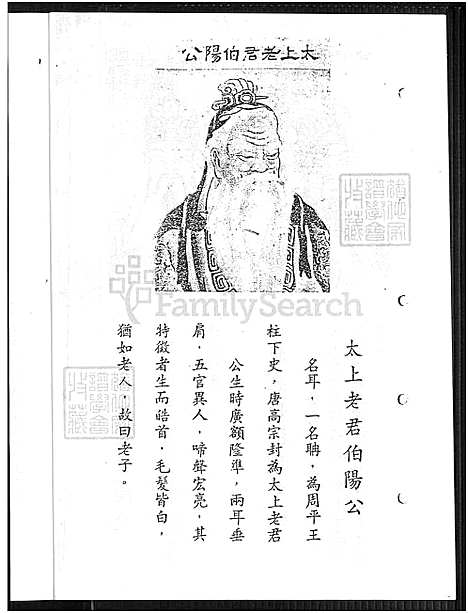 太上老君伯陽公
FamilySearch
太上老君伯陽公
名耳，一名聃，為周平王
柱下史，唐高宗封為太上老君
公生時廣額隆準，兩耳垂
肩，五官異人，啼聲宏亮，其
特徵者生而皓首，毛髮皆白，
猶如老人，故曰老子。